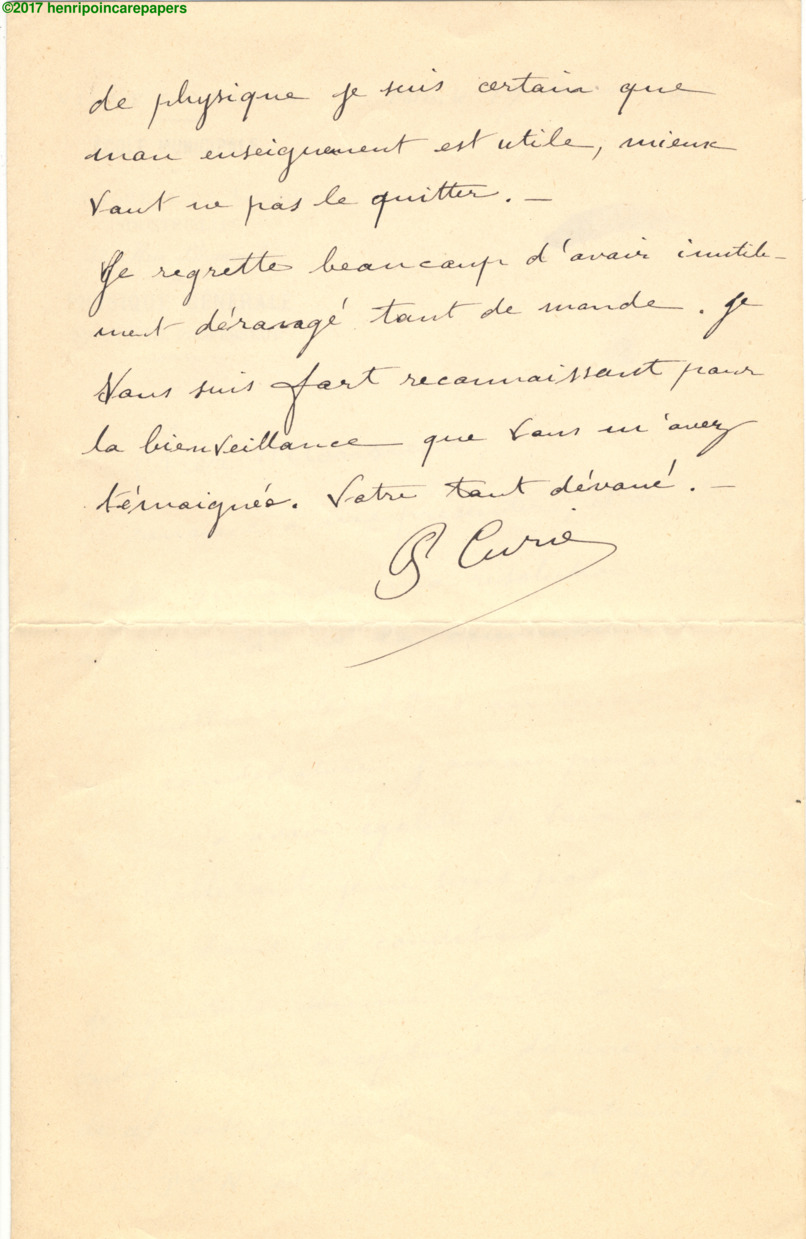 ©2017 henripoincarepapers
de physique je suis certain que
mon enseignement est utile, mieux
vaut ne pas le quitter. —
Je regrette beaucoup d'avoir inutile-
ment dérangé tant de monde. Je
vous suis fort reconnaissant pour
la bienveillance que vous m'avez
témoignée. Votre tout dévoué. —
P Curie